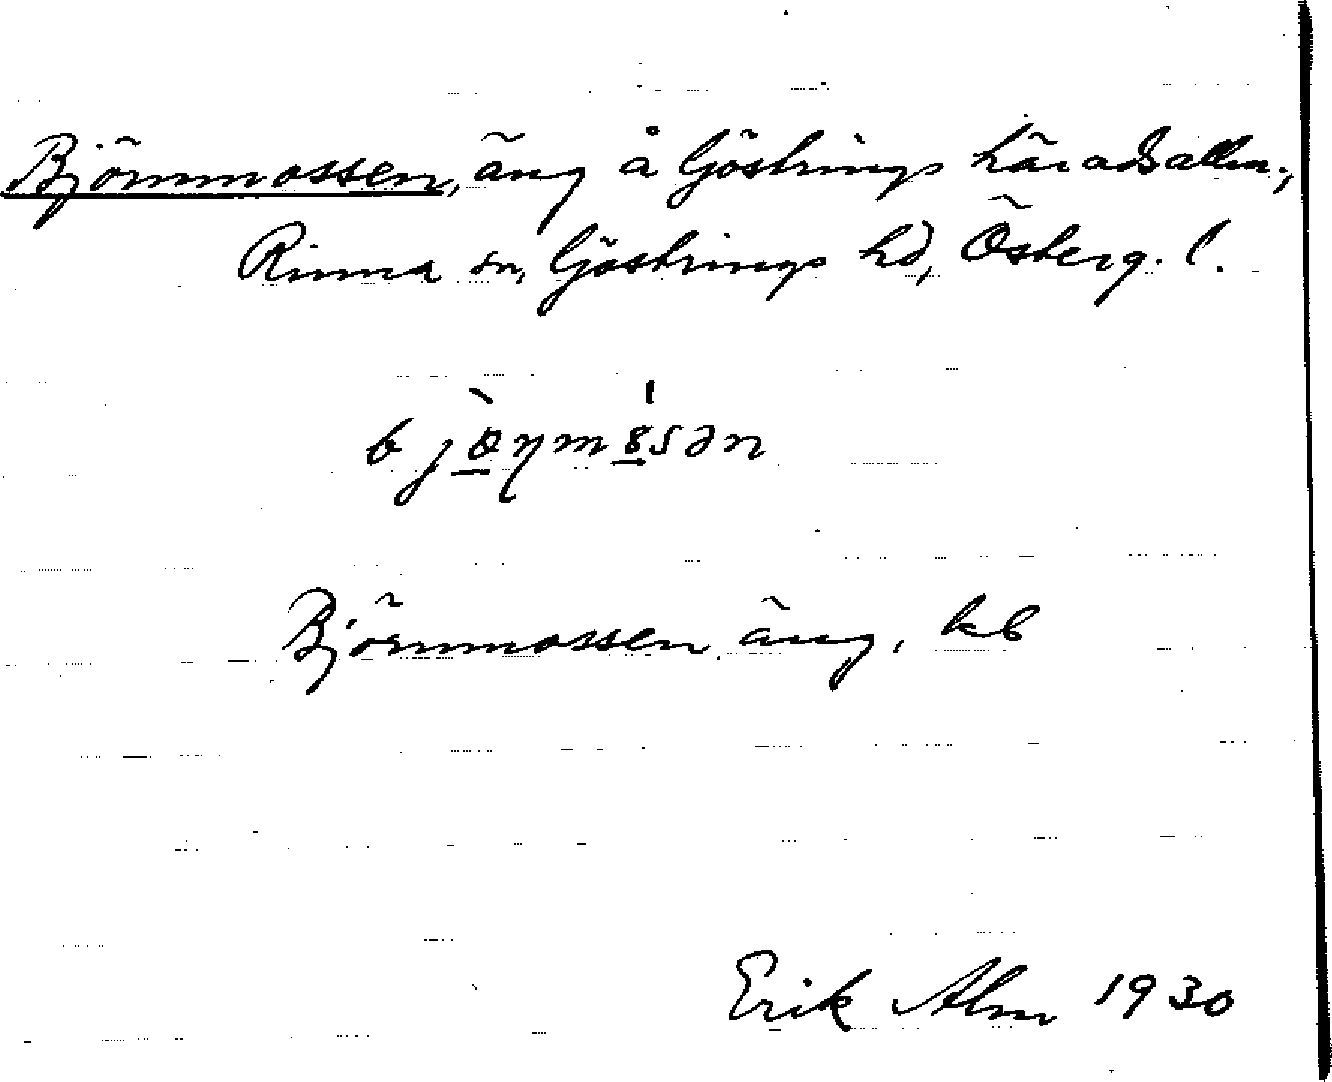 Björnmossen, äng å Göstrings häradsallm.,
Rinna sn, Göstrings hd, Österg. l.
Björnmossen äng, kb
Erik Alm 1930